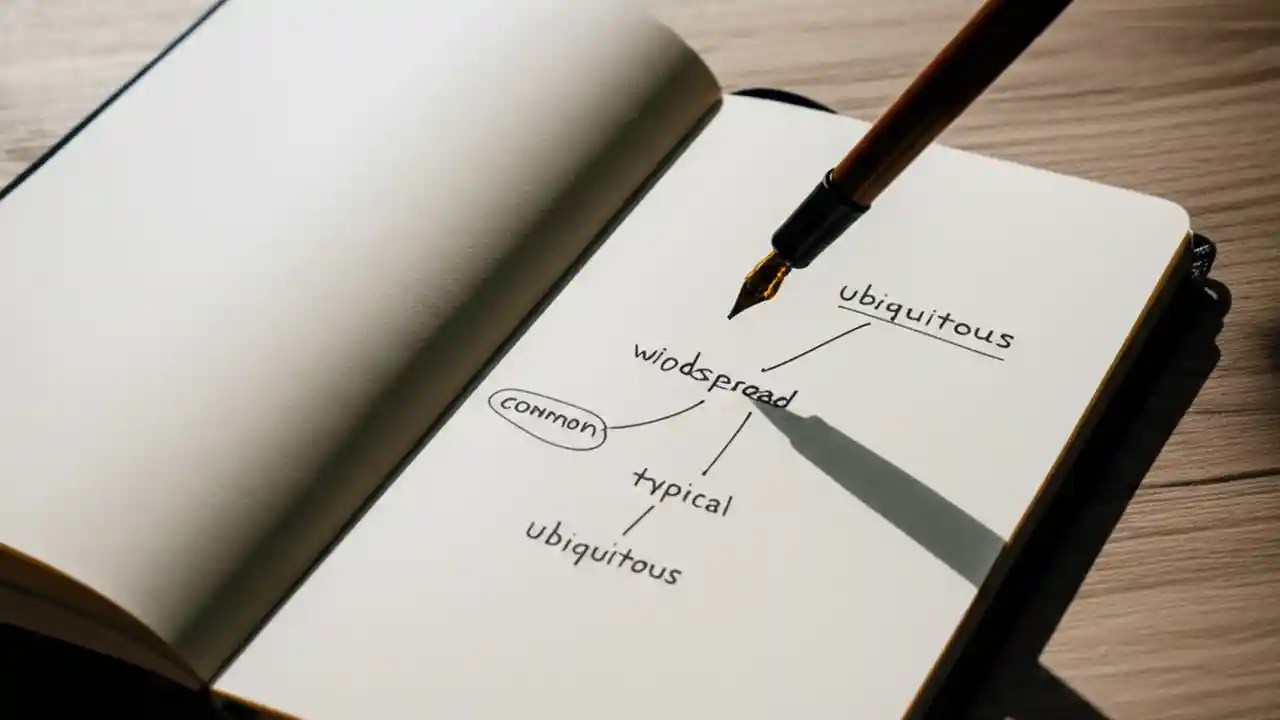 ubiquitous
wiodspread
common
typical
ubiquitous